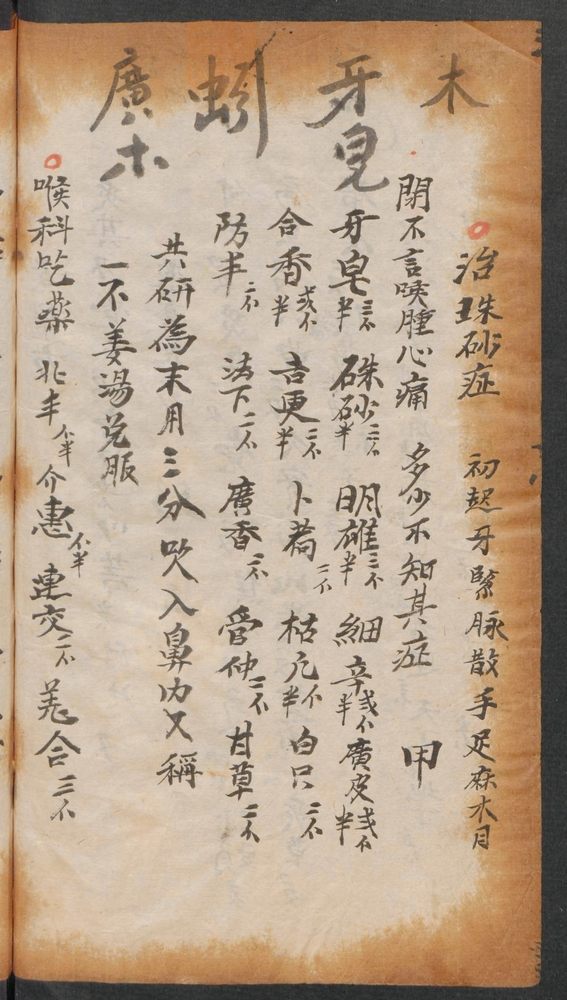 木 牙皂 蚓 廣木
治珠砂症 初起牙緊脉散手足麻木目
閉不言喉腫心痛 多少不知其症 甲
牙皂三不半 硃砂二不半 明雄三不半 細辛弍不半 廣皮弍不半
合香弍不半 吉更二不半 卜荷二不 枯凡不半 白只二不
防丰二不 法下二不 廣香二不 管仲二不 甘草二不
共研為末用三分吹入鼻内又稱
一不姜湯兑服
喉科吃藥 北丰不半 介惠不半 連交二不 羌合三不